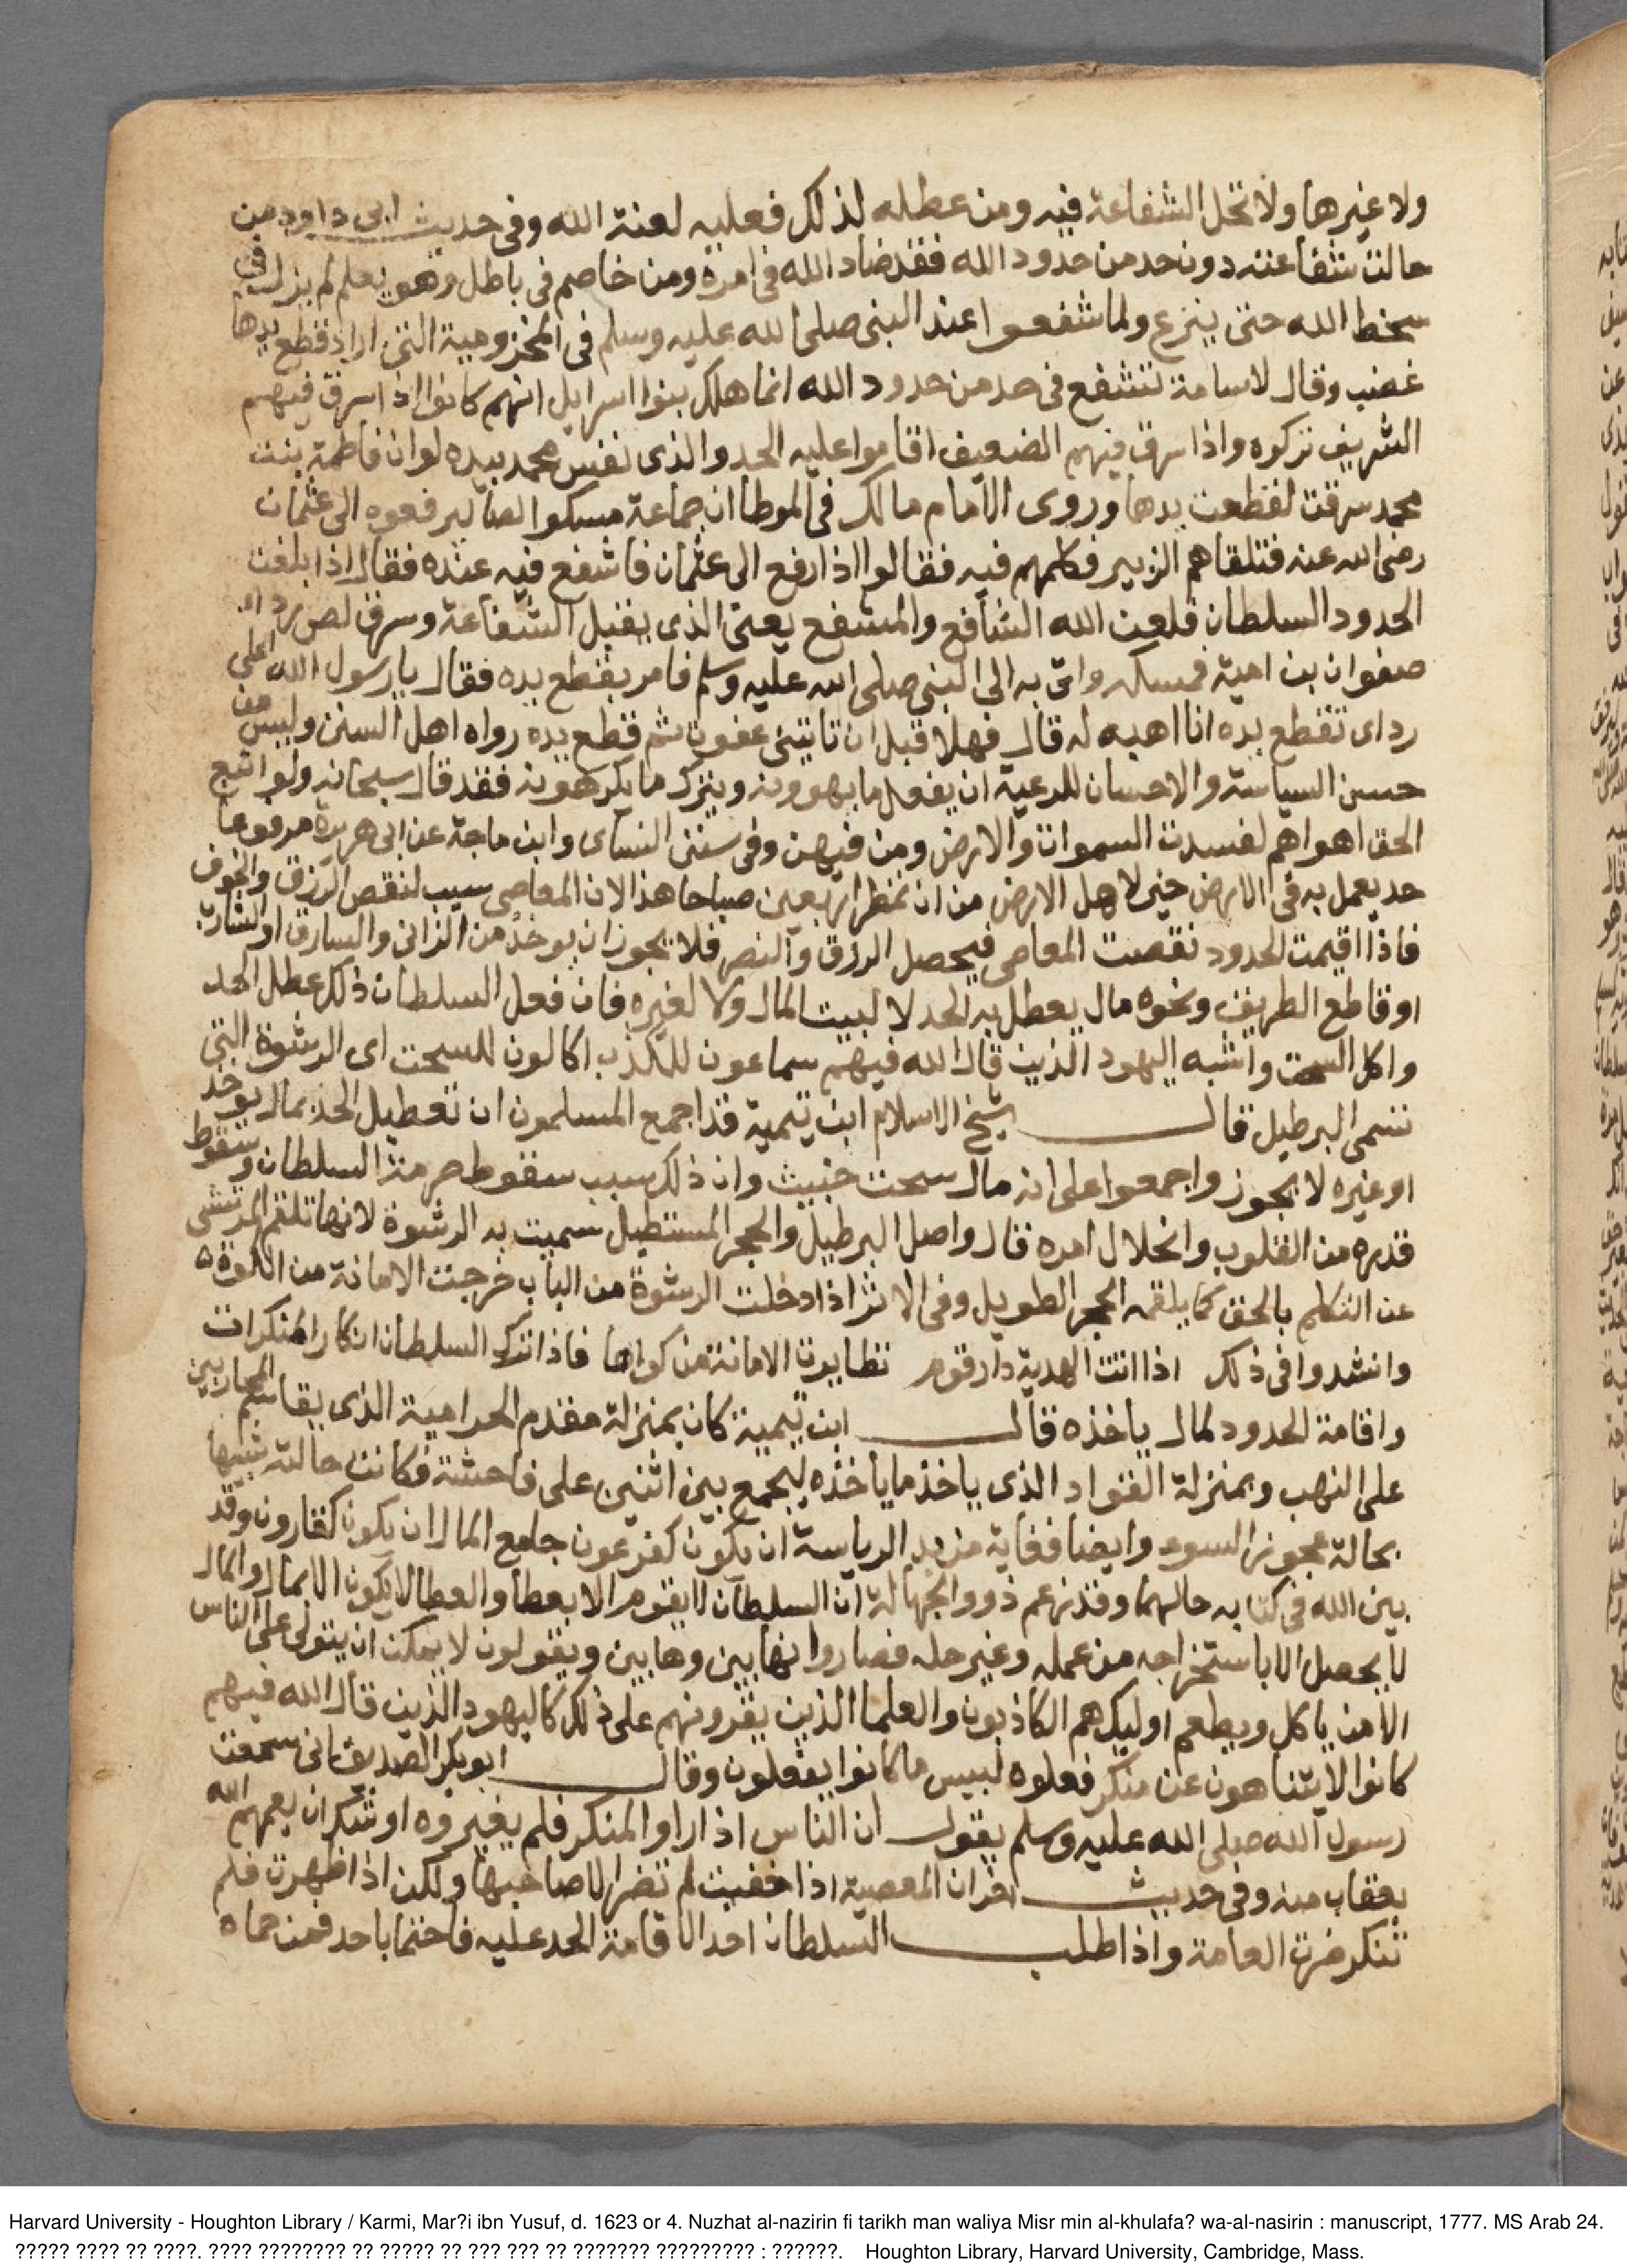 ولا غيرها ولا تحل الشفاعة فيه ومن عطله لذلك فعليه لعنة الله وفى حديث ابى داود من
حالت شفاعته دون حد من حدود الله فقد ضاد الله فى امره ومن خاصم فى باطل وهو يعلم لم يزل فى
سخط الله حتى ينزع ولما شفعوا عند النبى صلى الله عليه وسلم فى المخزومية التى اراد قطع يدها
غضب وقال لاسامة تشفع فى حد من حدود الله انما هلك بنوا اسرايل انهم كانوا اذا سرق فيهم
الشريف تركوه واذا سرق فيهم الضعيف اقاموا عليه الحد والذى نفس محمد بيده لو ان فاطمة بنت
محمد سرقت لقطعت يدها وروى الامام مالك فى الموطا ان جماعة مسكوا لصا ليرفعوه الى عثمان
رضى الله عنه فتلقاهم الزبير فكلمهم فيه فقالوا اذا رفع الى عثمان فاشفع فيه عنده فقال اذا بلغت
الحدود السلطان فلعن الله الشافع والمشفع يعنى الذى يقبل الشفاعة وسرق لص ردا
صفوان بن امية فمسكه واتى به الى النبى صلى الله عليه وسلم فامر بقطع يده فقال يا رسول الله اعلى
رداى تقطع يده انا اهبه له قال فهلا قبل ان تاتينى عفوت ثم قطع يده رواه اهل السنن وليس من
حسن السياسة والاحسان للرعية ان يفعل ما يهوونه ويترك ما يكرهونه فقد قال سبحانه ولو اتبع
الحق اهواهم لفسدت السموات والارض ومن فيهن وفى سنن النساى وابن ماجة عن ابى هريرة مرفوعا
حد يعمل به فى الارض خير لاهل الارض من ان تمطر اربعين صباحا هذا لان المعاصى سبب لنقص الرزق والخوف
فاذا اقيمت الحدود نقصت المعاصى فيحصل الرزق والنصر فلا يجوز ان يوخذ من الزانى والسارق او الشارب
او قاطع الطريق ونحوه مال يعطل به الحد لا لبيت المال ولا لغيره فان فعل السلطان ذلك عطل الحد
واكل السحت واشبه اليهود الذين قال الله فيهم سماعون للكذب اكالون للسحت اى الرشوة التى
تسمى البرطيل قال شيخ الاسلام ابن تيمية قد اجمع المسلمون ان تعطيل الحد بمال يوخذ
او غيره لا يجوز واجمعوا على انه مال سحت خبيث وان ذلك سبب سقوط حرمة السلطان وسقوط
قدره من القلوب وانحلال امره قال واصل البرطيل والحجر المستطيل سميت به الرشوة لانها تلقم المرتشى
عن التكلم بالحق كما يلقمه الحجر الطويل وفى الاثر اذا دخلت الرشوة من الباب خرجت الامانة من الكوة
وانشدوا فى ذلك اذا اتت الهدية دار قوم تطايرت الامانة من كواها فاذا ترك السلطان انكار المنكرات
واقامة الحدود لمال ياخذه قال ابن تيمية كان بمنزلة مقدم الحرامية الذى يقاسم المحاربين
على النهب وبمنزلة القواد الذى ياخذ ما ياخذه ليجمع بين اثنين على فاحشة فكانت حالته شبيها
بحالة عجوز السوء وايضا فغاية مريد الرياسة ان يكون كفرعون جامع المال ان يكون كقارون وقد
بين الله فى كتابه حالهما وقد زعم ذووا الجهالة ان السلطان لا يقوم الا بعطا والعطا لا يكون الا بمال والمال
لا يحصل الا باستخراجه من عمله وغير حله فصاروا نهابين وهابين ويقولون لا يمكن ان يتولى على الناس
الا من ياكل ويطعم اوليك هم الكاذبون والعلما الذين يقرونهم على ذلك كاليهود الذين قال الله فيهم
كانوا لا يتناهون عن منكر فعلوه لبيس ما كانوا يفعلون وقال ابو بكر الصديق انى سمعت
رسول الله صلى الله عليه وسلم يقول ان الناس اذا راوا المنكر فلم يغيروه اوشك ان يعمهم الله
بعقاب منه وفى حديث اخر ان المعصية اذا خفيت لم تضر الا صاحبها ولكن اذا ظهرت فلم
تنكر ضرت العامة واذا طلب السلطان احدا لاقامة الحد عليه فاحتما باحد فمن حماه
Harvard University - Houghton Library / Karmi, Mar?i ibn Yusuf, d. 1623 or 4. Nuzhat al-nazirin fi tarikh man waliya Misr min al-khulafa? wa-al-nasirin : manuscript, 1777. MS Arab 24.
????? ???? ?? ????. ???? ???????? ?? ????? ?? ??? ??? ?? ??????? ????????? : ??????. Houghton Library, Harvard University, Cambridge, Mass.